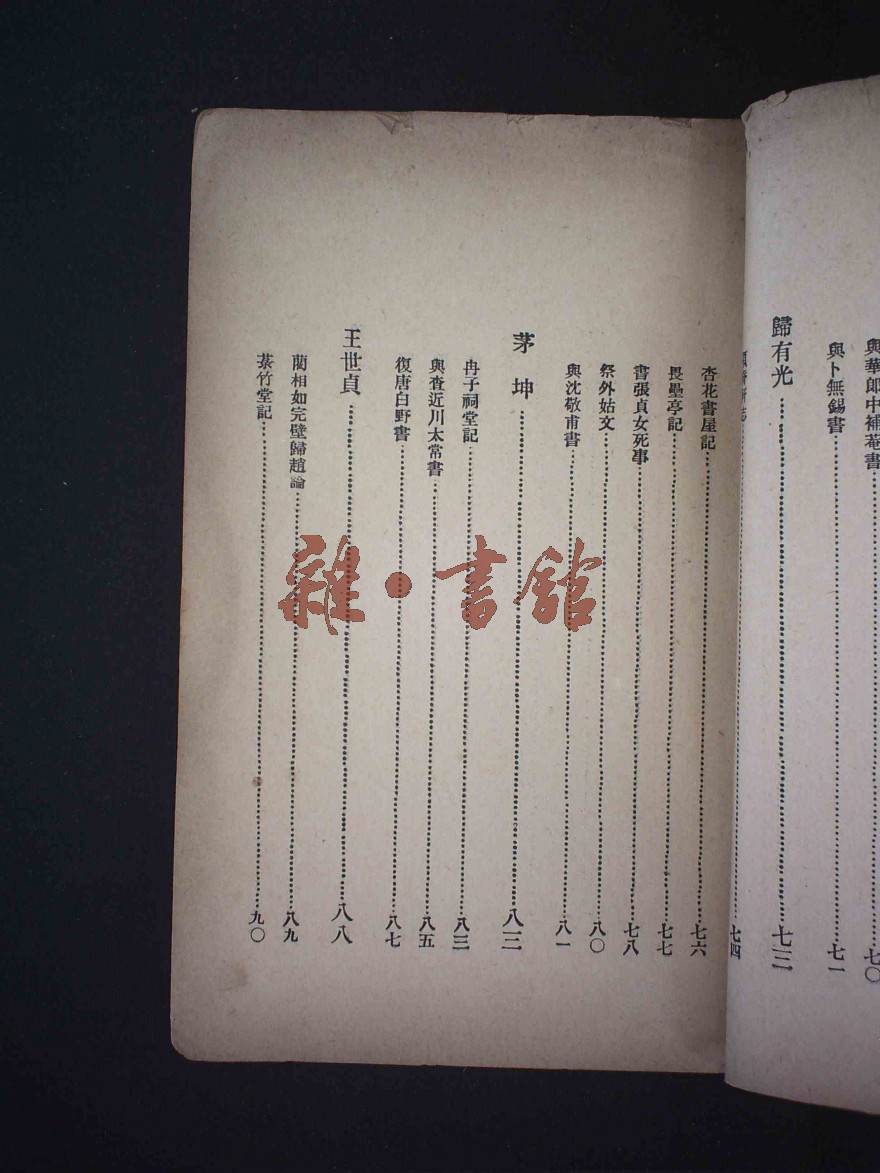 與華郎中補菴書……七〇
與卜無錫書……七一
歸有光……七三
七四
杏花書屋記……七六
畏壘亭記……七七
書張貞女死事……七八
祭外姑文……八〇
與沈敬甫書……八一
茅坤……八三
冉子祠堂記……八三
與查近川太常書……八五
復唐白野書……八七
王世貞……八八
藺相如完璧歸趙論……八九
菉竹堂記……九〇
雜·書館